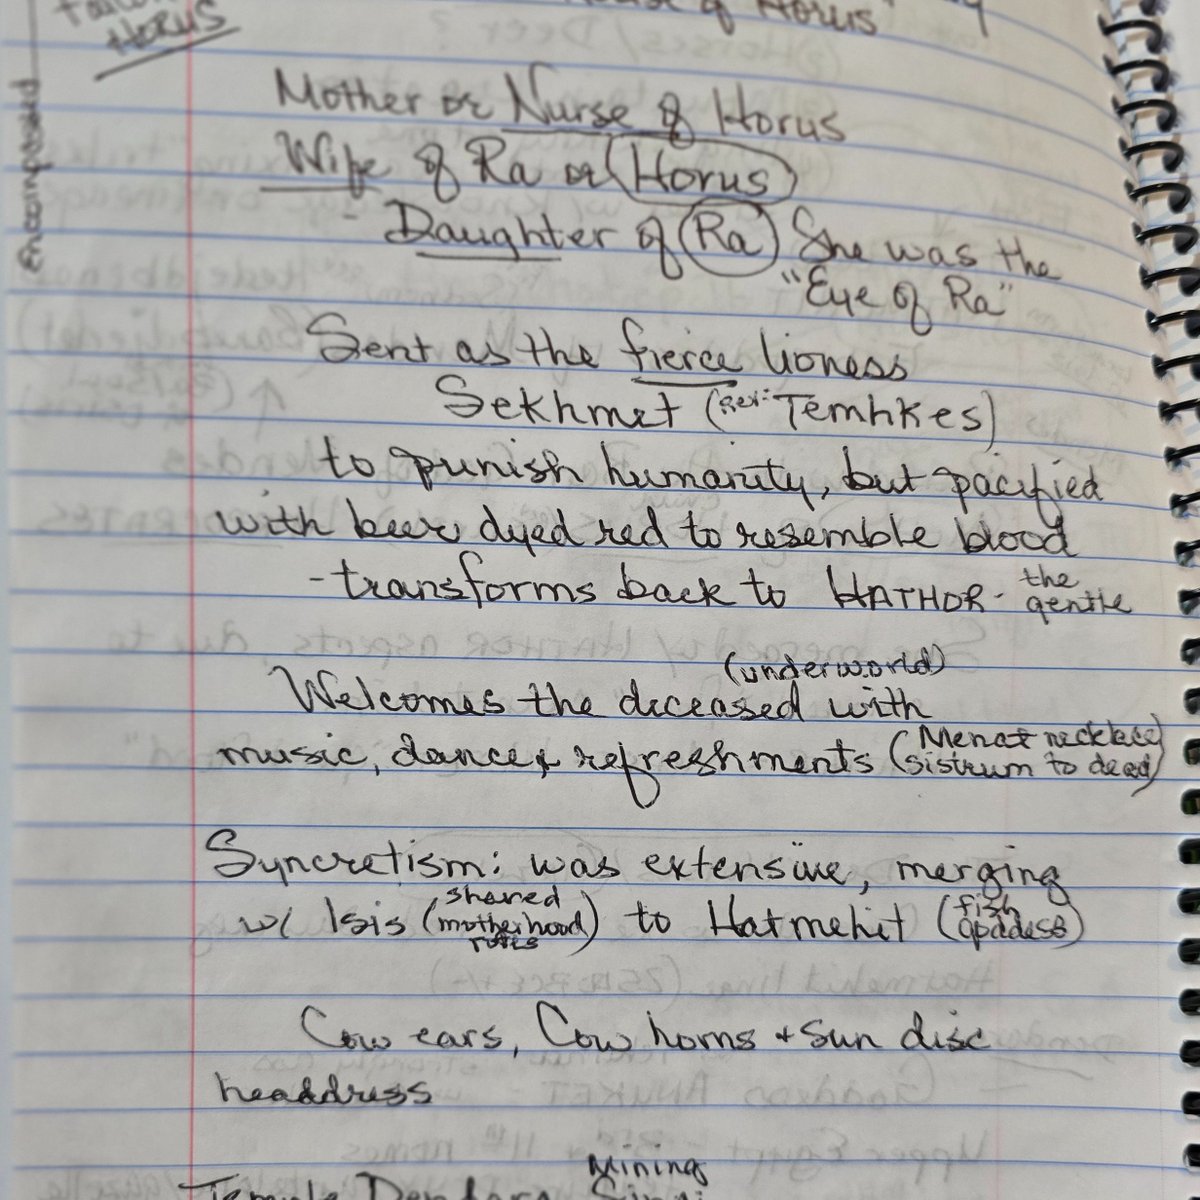 of Horus"
HORUS
Encompassed
Mother or Nurse of Horus
Wife of Ra or Horus
- Daughter of Ra She was the
"Eye of Ra"
Sent as the fierce lioness
Sekhmet (rev: Temhkes)
to punish humanity, but pacified
with beer dyed red to resemble blood
- transforms back to HATHOR - the
gentle
(underworld)
Welcomes the deceased with
music, dance & refreshments (Menat necklace
sistrum to dead)
Syncretism: was extensive, merging
w/ Isis (shared motherhood roles) to Hatmehit (fish goddess)
Cow ears, Cow horns + Sun disc
headdress
Mining
Temple Dendara Sinai